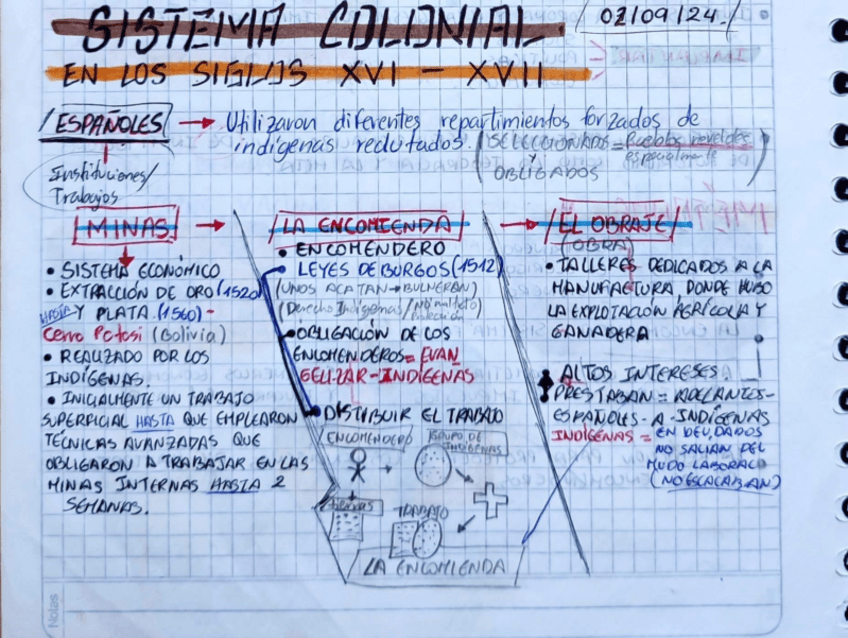 SISTEMA COLONIAL
02/09/24.
EN LOS SIGLOS XVI - XVII
ESPAÑOLES → Utilizaron diferentes repartimientos forzados de
indígenas reclutados. (SELECCIONADOS = Pueblos
especialmente
Y
OBLIGADOS)
Instituciones/
Trabajos
MINAS →
• SISTEMA ECONÓMICO
• EXTRACCIÓN DE ORO (1520)
HASTA Y PLATA (1560) -
Cerro Potosi (Bolivia)
• REALIZADO POR LOS
INDÍGENAS.
• INICIALMENTE UN TRABAJO
SUPERFICIAL HASTA QUE EMPLEARON
TÉCNICAS AVANZADAS QUE
OBLIGARON A TRABAJAR EN LAS
MINAS INTERNAS HASTA 2
SEMANAS.
LA ENCOMIENDA →
• ENCOMENDERO
• LEYES DE BURGOS (1512)
(UNOS ACATAN → BULNERAN)
(Derecho Indígenas /No maltrato/
• OBLIGACIÓN DE LOS
ENCOMENDEROS = EVAN
GELIZAR - INDÍGENAS
• DISTIBUIR EL TRABAJO
ENCOMENDERO
GRUPO DE
INDÍGENAS
TRABAJO
LA ENCOMIENDA
EL OBRAJE
(OBRA)
• TALLERES DEDICADOS A LA
MANUFACTURA DONDE HUBO
LA EXPLOTACIÓN AGRÍCOLA Y
GANADERA
ALTOS INTERESES.
PRESTABAN = ADELANTOS -
ESPAÑOLES - A - INDÍGENAS
INDÍGENAS = EN DEUDADOS
NO SALIAN DEL
MUDO LABORAL
(NO ESCACABAN)
Notas